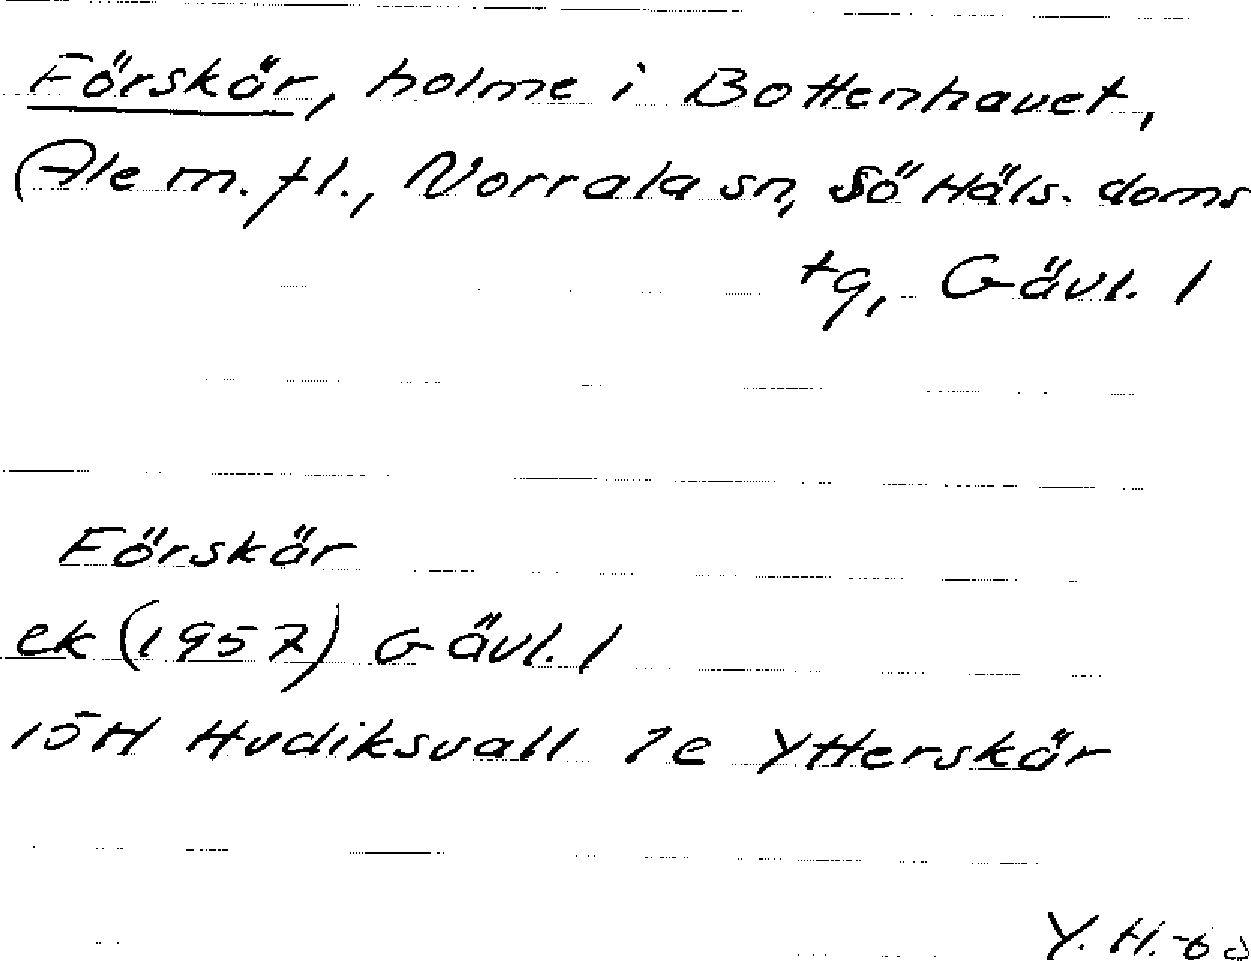 Förskär, holme i Bottenhavet,
Ale m. fl., Norrala sn, Sö Häls. doms
tg, Gävl. l
Förskär
ek (1957) Gävl. l
15H Hudiksvall 7e Ytterskär
Y. H.